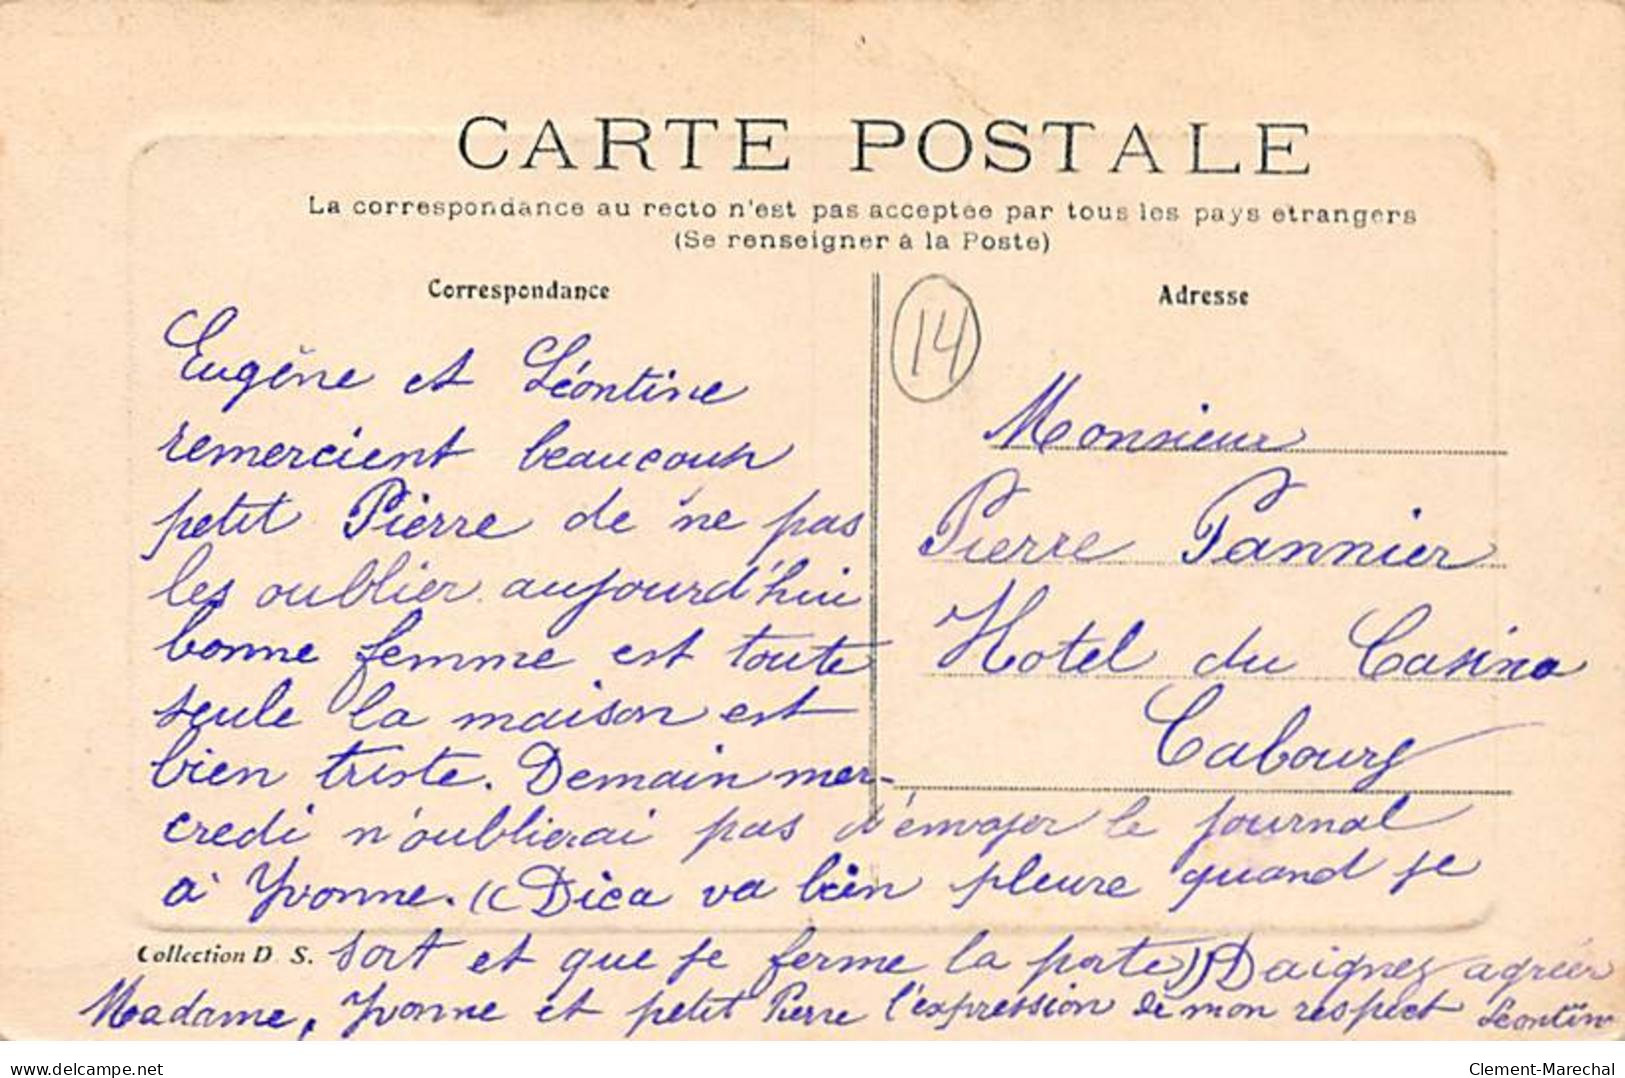 CARTE POSTALE
La correspondance au recto n'est pas acceptée par tous les pays etrangers
(Se renseigner à la Poste)
Correspondance
Eugène et Léontine
remercient beaucoup
petit Pierre de ne pas
les oublier aujourd'hui
bonne femme est toute
seule la maison est
bien triste. Demain mer-
credi n'oublierai pas d'envoyer le journal
à Yvonne. ((Dica va bien pleure quand je
sort et que je ferme la porte)) Daignez agréer
Madame, Yvonne et petit Pierre l'expression de mon respect Léontine
14
Adresse
Monsieur
Pierre Pannier
Hotel du Casino
Cabourg
Collection D. S.
www.delcampe.net
Clement-Marechal